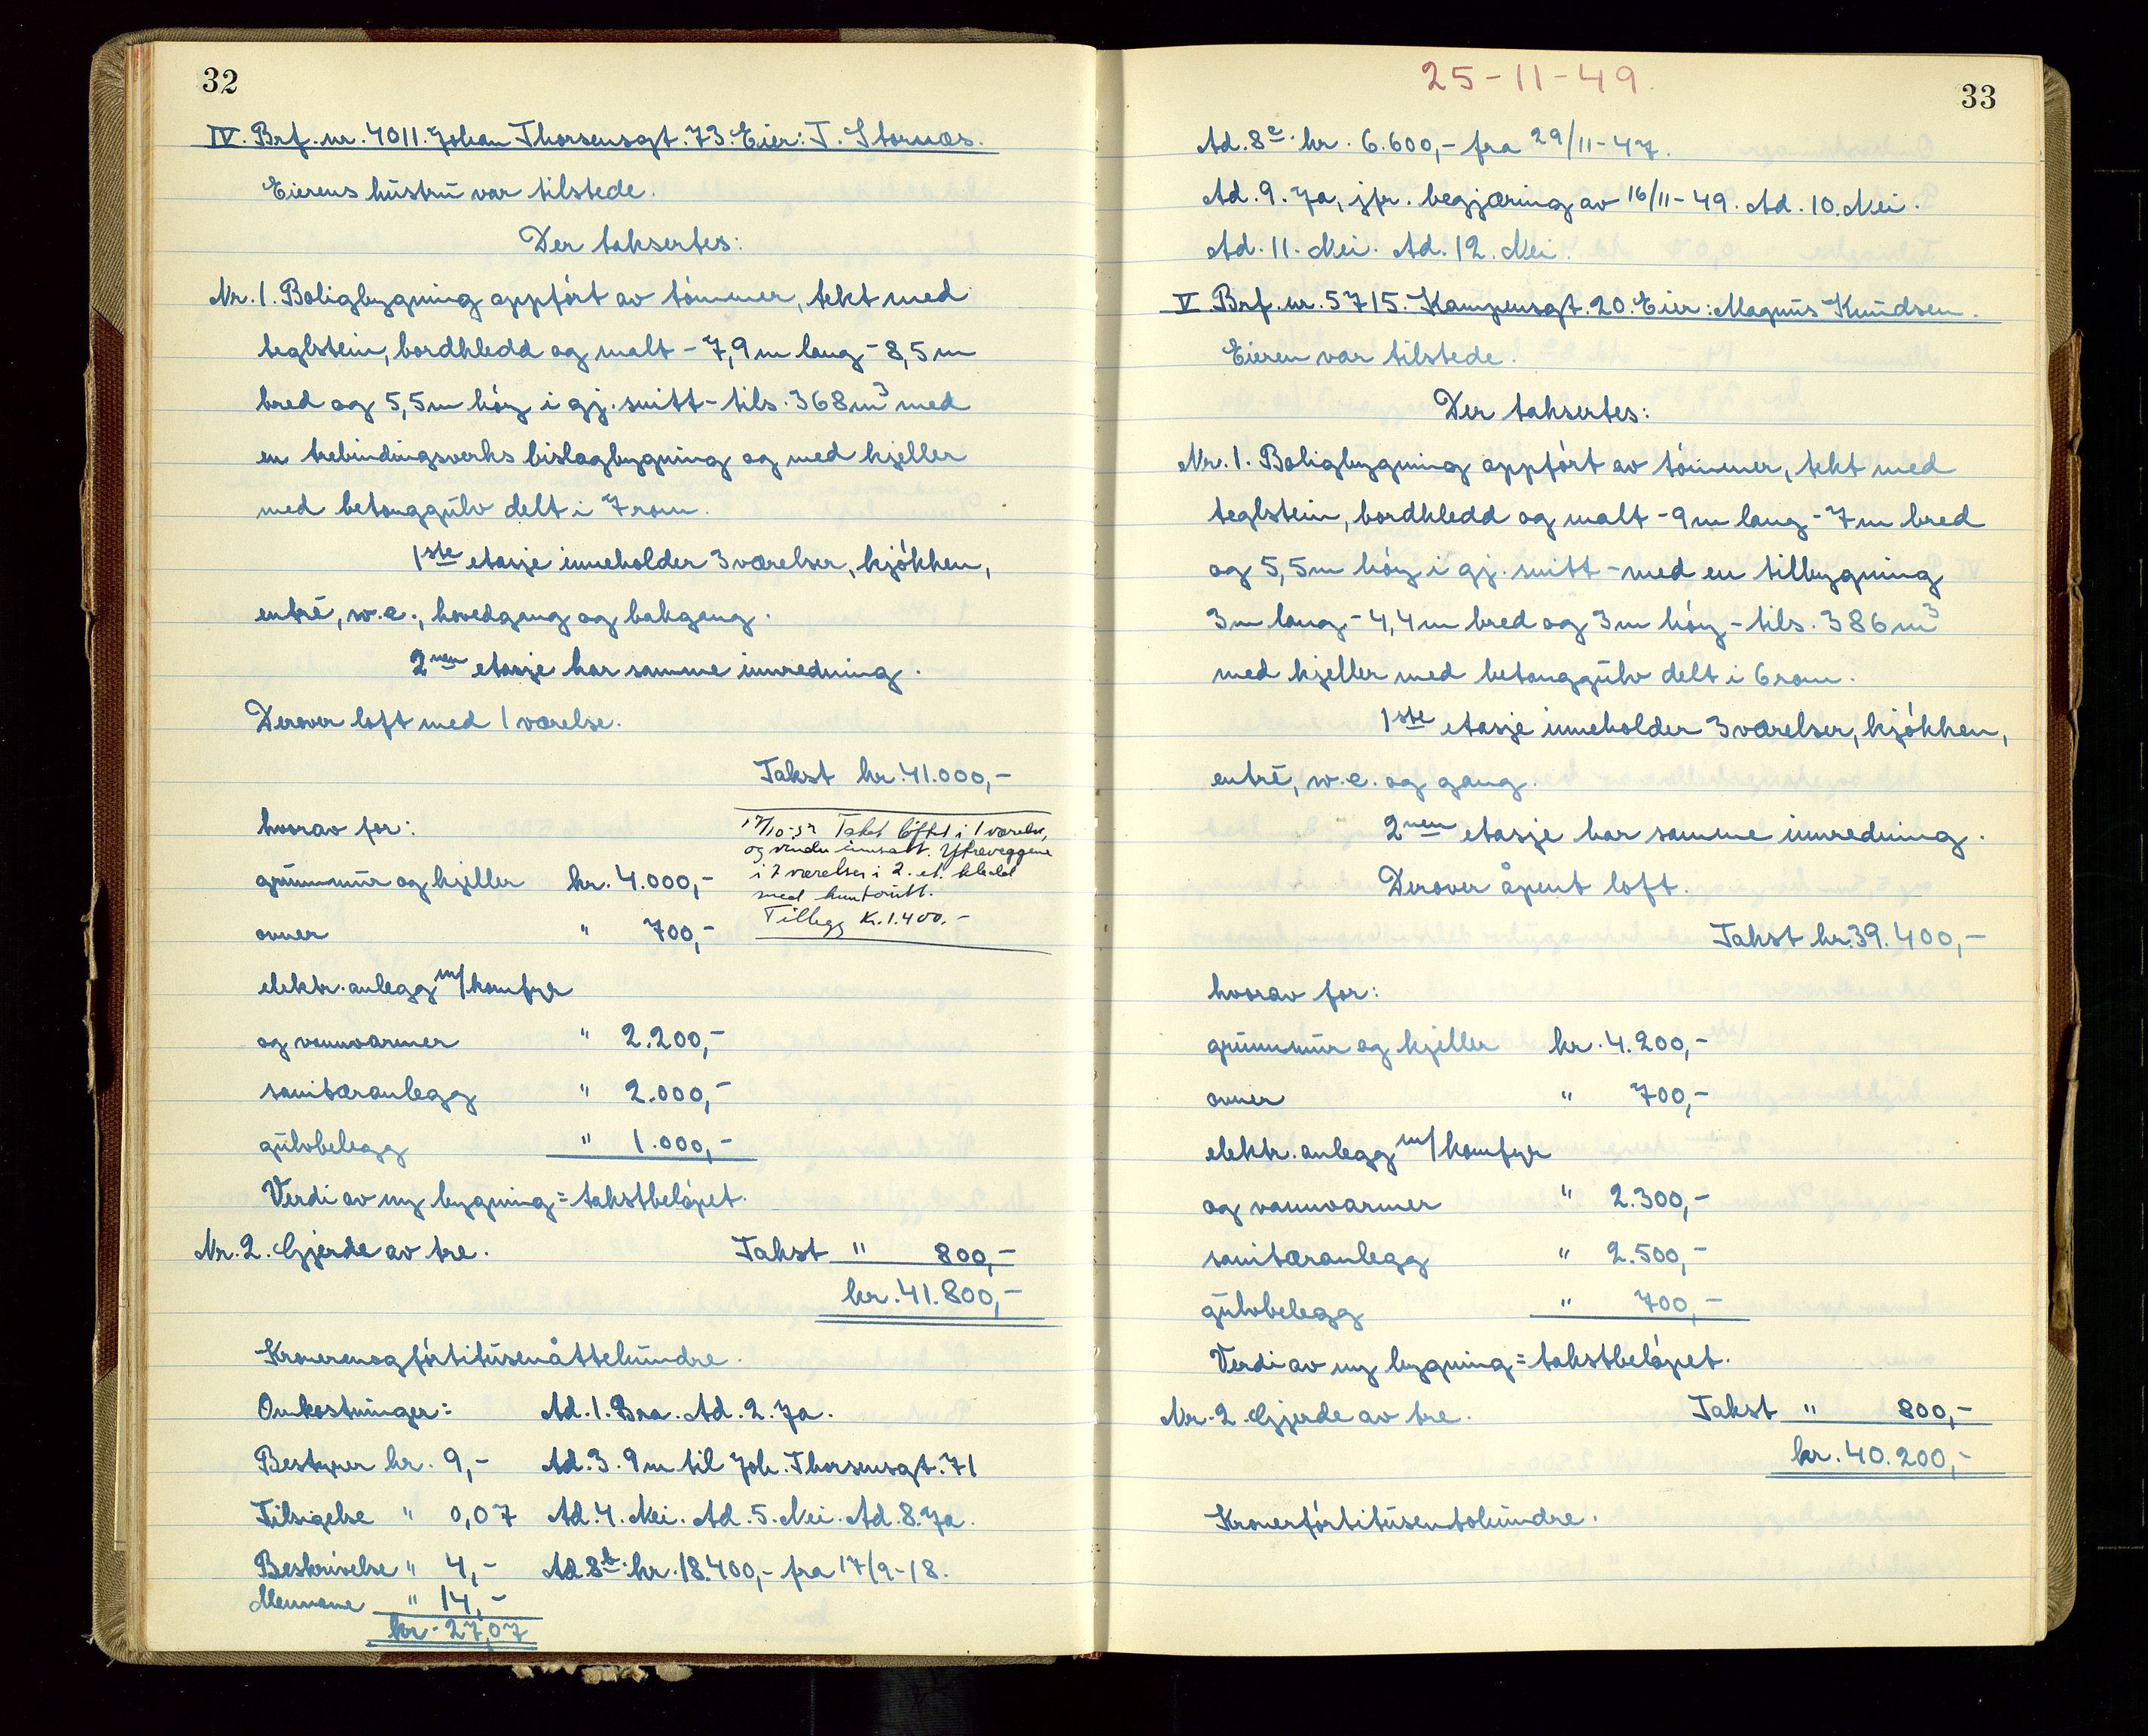 32
IV. Brf. nr. 4011. Johan Thorsensgt. 73. Eier: T. Stornæs.
Eierens hustru var tilstede.
Der taksertes:
Nr. 1. Boligbygning oppført av tømmer, tekt med
teglstein, bordkledd og malt - 7,9 m lang - 8,5 m
bred og 5,5 m høy i gj. snitt - tils. 368 m³ med
en trebindingsverks bislagbygning og med kjeller
med betonggulv delt i 7 rom.
1ste etasje inneholder 3 værelser, kjøkken,
entré, w.c., hovedgang og bakgang.
2nen etasje har samme innredning.
Derover loft med 1 værelse.
Takst kr. 41.000,-
hvorav for:
17/10-52 Taket løftet i 1 værelse,
og vindu innsatt. Ytreveggene
i 2 værelser i 2. et. kledd
med huntonitt.
Tillegg kr. 1.400.-
grunnmur og kjeller kr. 4.000,-
ovner " 700,-
elektr. anlegg m/komfyr
og vannvarmer " 2.200,-
sanitæranlegg " 2.000,-
gulvbelegg " 1.000,-
Verdi av ny bygning = takstbeløpet.
Nr. 2. Gjerde av tre. Takst " 800,-
kr. 41.800,-
Kronerenogførtitusenåttehundre.
Omkostninger: Ad. 1. Bra. Ad. 2. Ja.
Bestyrer kr. 9,- Ad. 3. 9 m til Joh. Thorsensgt. 71
Tilsigelse " 0,07 Ad. 4. Nei. Ad. 5. Nei. Ad. 8. Ja.
Beskrivelse " 4,- Ad. 8b. kr. 18.400,- fra 17/9-18.
Mennene " 14,-
kr. 27,07
25-11-49.
33
Ad. 8c. kr. 6.600,- fra 29/11-47.
Ad. 9. Ja, jfr. begjæring av 16/11-49. Ad. 10. Nei.
Ad. 11. Nei. Ad. 12. Nei.
V. Brf. nr. 5715. Kampensgt. 20. Eier: Magnus Knudsen.
Eieren var tilstede.
Der taksertes:
Nr. 1. Boligbygning oppført av tømmer, tekt med
teglstein, bordkledd og malt - 9 m lang - 7 m bred
og 5,5 m høy i gj. snitt - med en tilbygning
3 m lang - 4,4 m bred og 3 m høy - tils. 386 m³
med kjeller med betonggulv delt i 6 rom.
1ste etasje inneholder 3 værelser, kjøkken,
entré, w.c. og gang.
2nen etasje har samme innredning.
Derover åpent loft.
Takst kr. 39.400,-
hvorav for:
grunnmur og kjeller kr. 4.200,-
ovner " 700,-
elektr. anlegg m/komfyr
og vannvarmer " 2.300,-
sanitæranlegg " 2.500,-
gulvbelegg " 700,-
Verdi av ny bygning = takstbeløpet.
Nr. 2. Gjerde av tre. Takst " 800,-
kr. 40.200,-
Kronerførtitusentohundre.